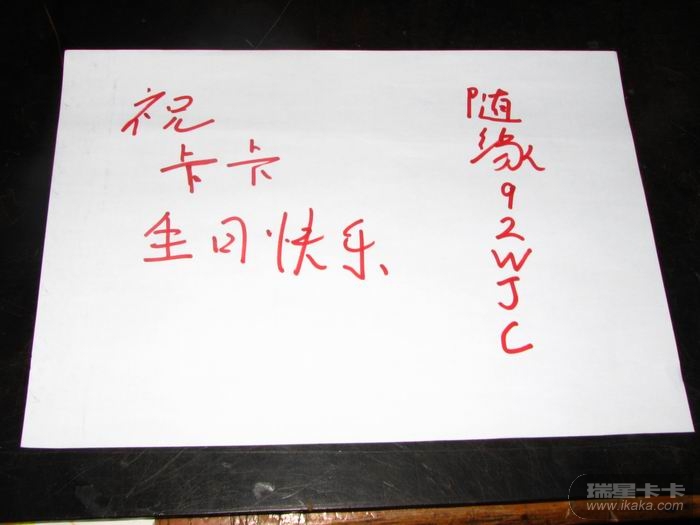 祝
卡卡
生日快乐
随缘92WJC
瑞星卡卡
www.ikaka.com